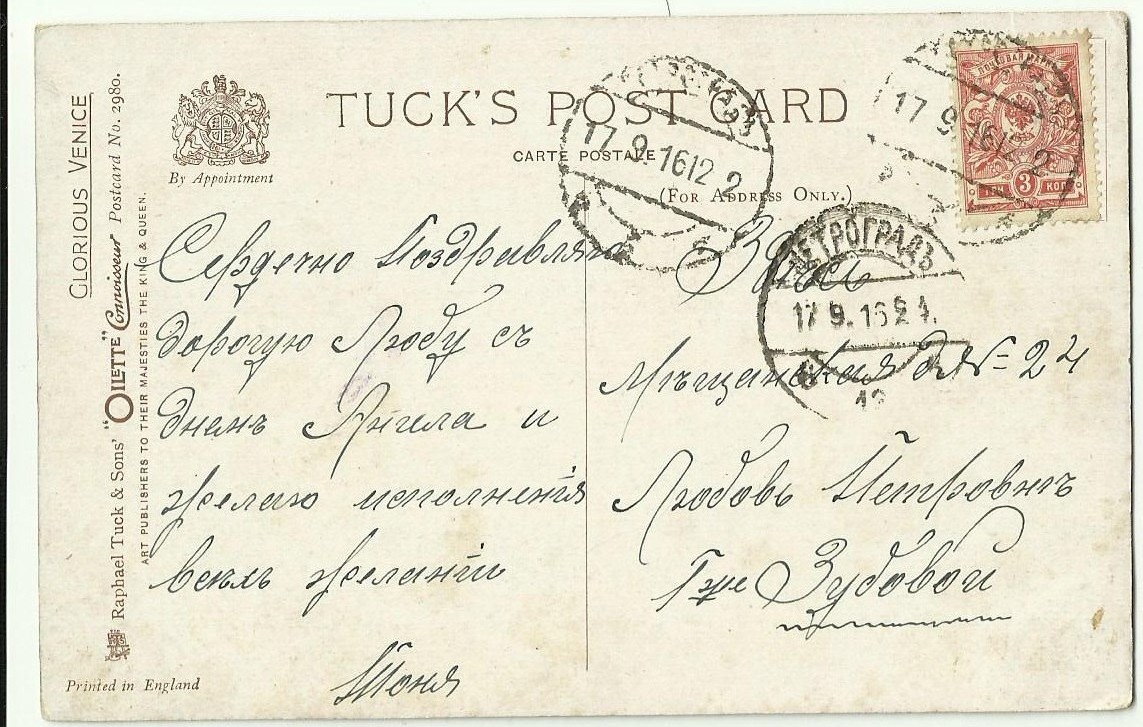 TUCK'S POST CARD
CARTE POSTALE
(FOR ADDRESS ONLY.)
By Appointment
GLORIOUS VENICE
Raphael Tuck & Sons' "OILETTE" Connoisseur Postcard No. 2980.
ART PUBLISHERS TO THEIR MAJESTIES THE KING & QUEEN.
Printed in England
Сердечно Поздравляю
дорогую Любу съ
днемъ Ангела и
желаю исполненія
всѣхъ желаній
Тоня
Здѣсь
Мѣщанская д № 24
Любовь Петровнѣ
Гже Зубовой
ПЕТРОГРАДЪ
17.9.16 12 2
ПЕТРОГРАДЪ
17.9.16
12
17 9 16 12 2
ПОЧТОВАЯ МАРКА
ТРИ 3 КОП